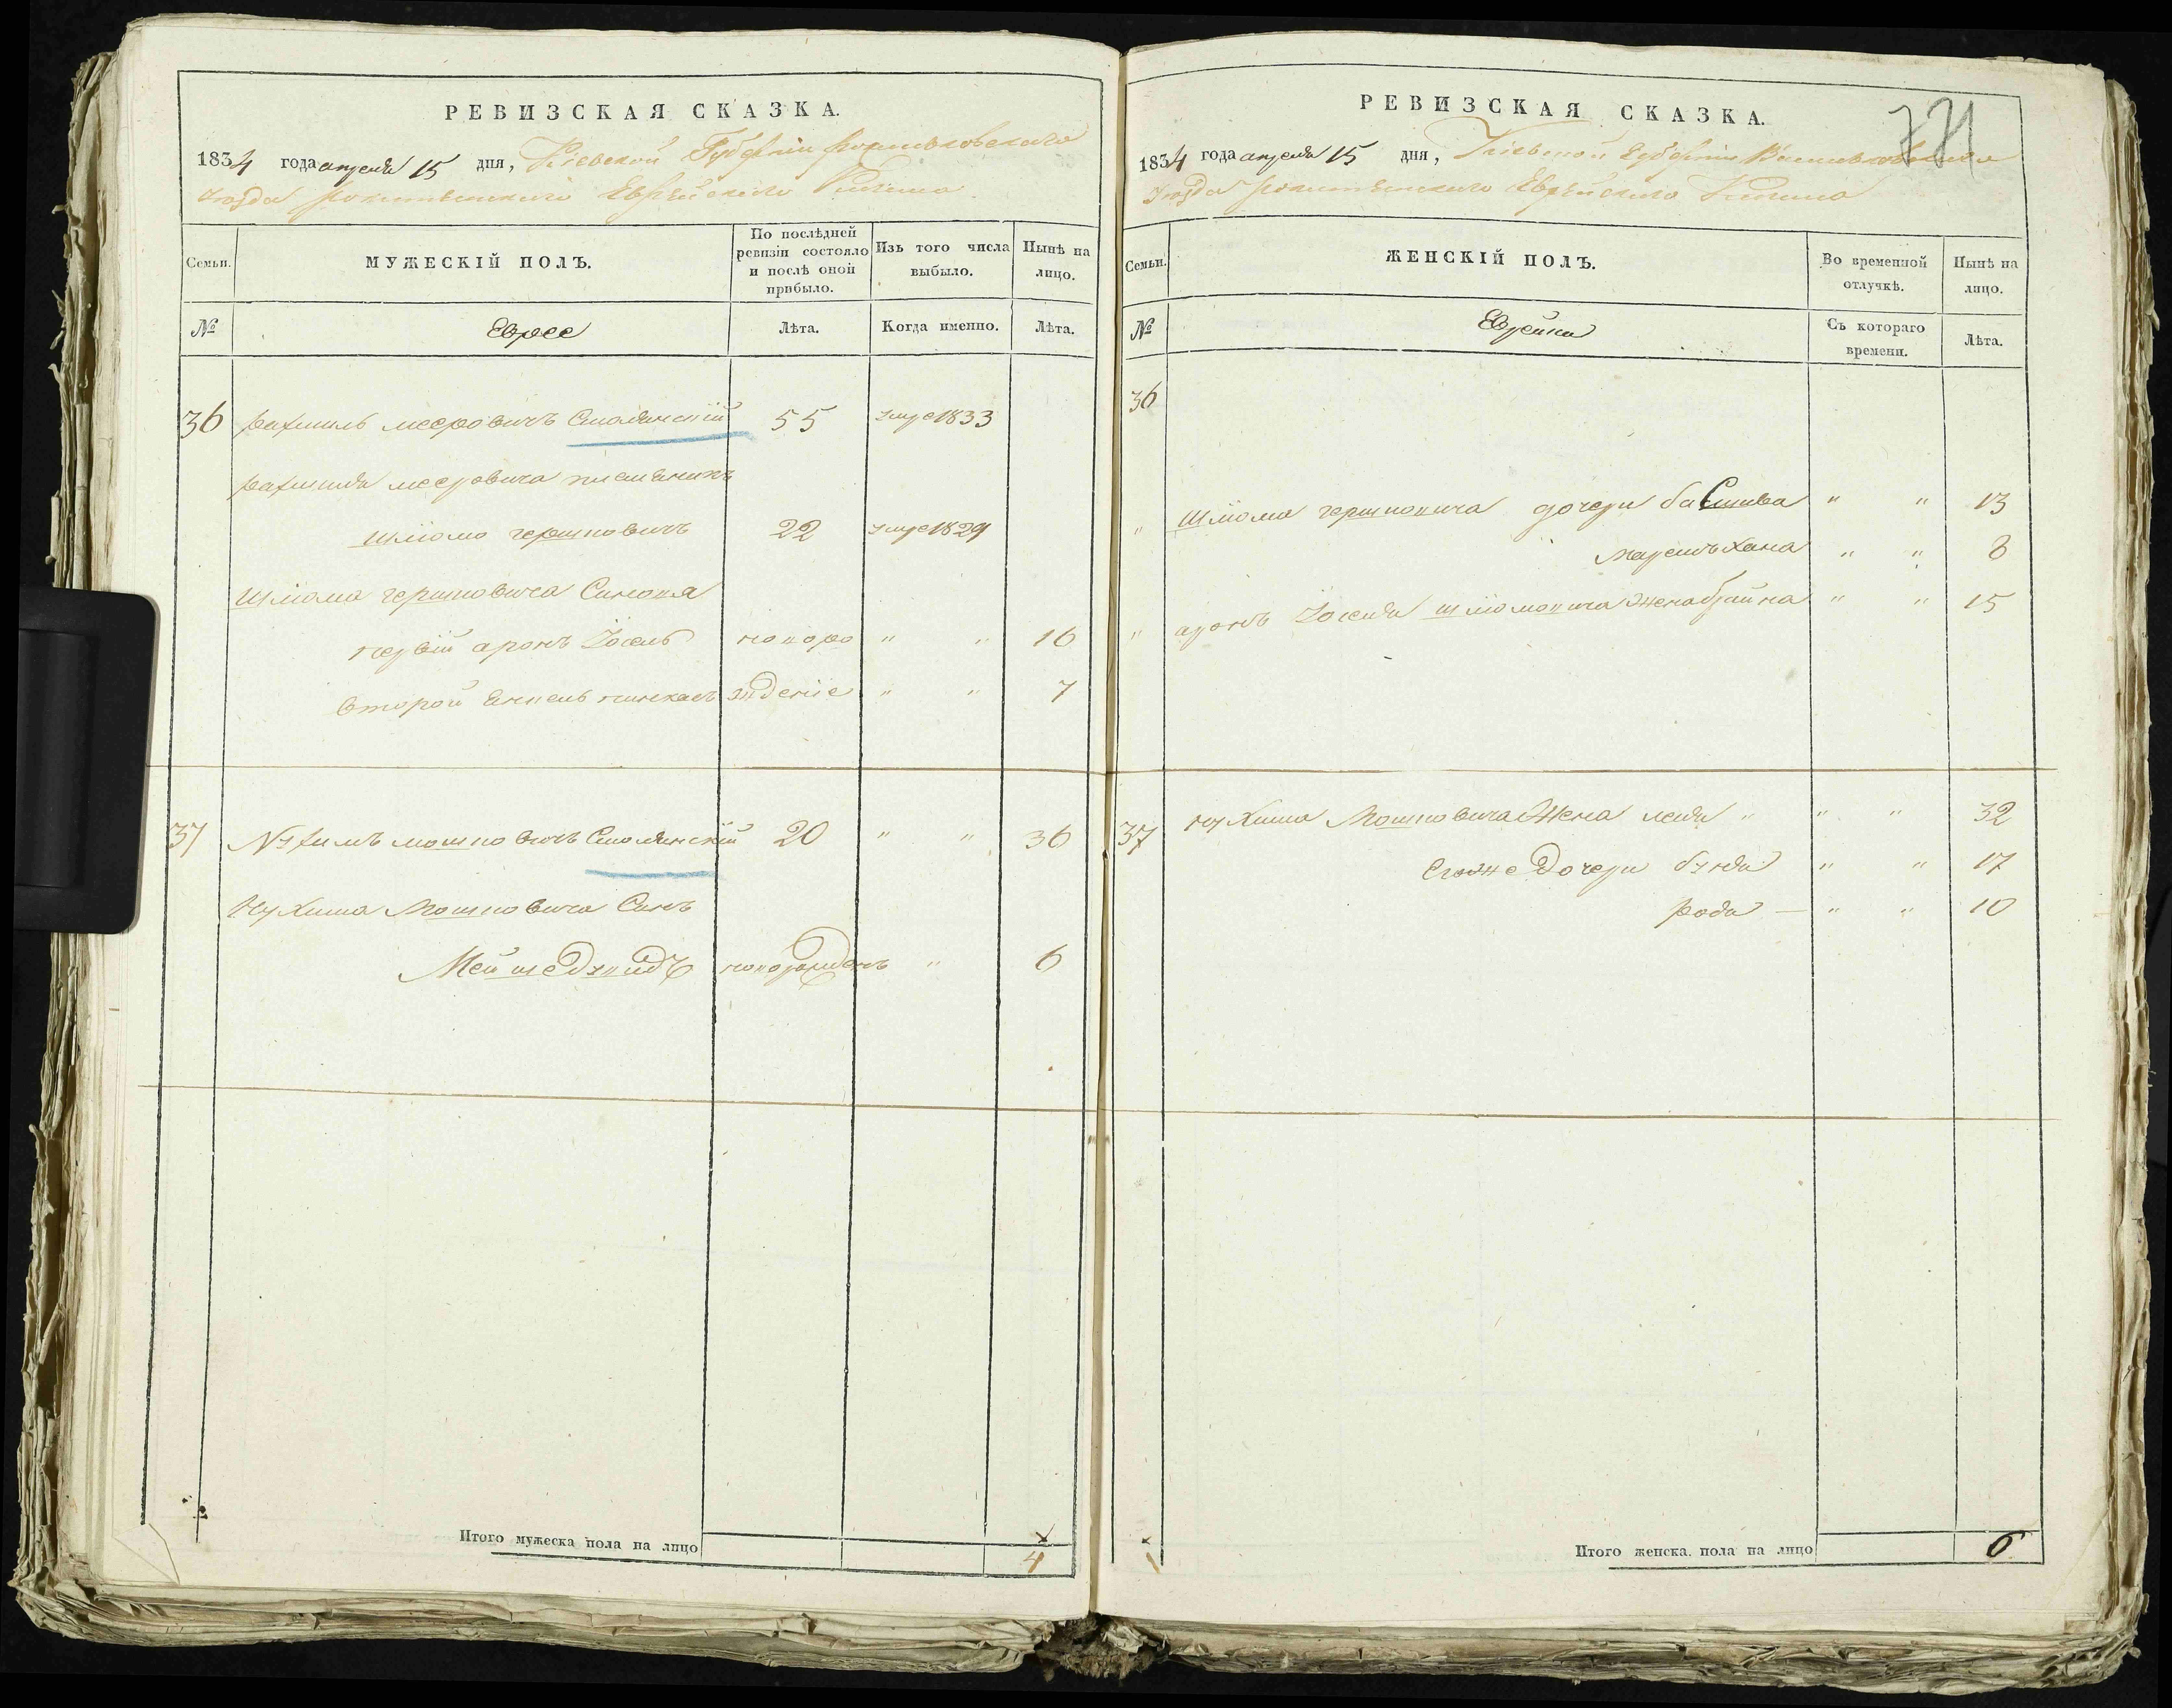 РЕВИЗСКАЯ СКАЗКА.
1834 года апреля 15 дня, Киевской Губернiи Васильковского
уезда Рокитянского Еврейского Кагала
Семьи. МУЖЕСКІЙ ПОЛЪ. По послѣдней ревизіи состояло и послѣ оной прибыло. Изъ того числа выбыло. Нынѣ на лицо.
№ Еврее Лѣта. Когда именно. Лѣта.
36 Рахмиль мееровичъ Смолянскій 55 умре 1833
Рахмиля мееровича племяникъ
шліомо гершковичъ 22 умре 1829
Шліома гершковича Синовя
первій аронъ Іосель новоро " " 16
второй Янкель пинхасъ жденіе " " 7
37 Нухимъ мошковичъ Смолянскій 20 " " 36
Нухима Мошковича Синъ
новорожденъ " 6
Итого мужеска пола на лицо 4
РЕВИЗСКАЯ СКАЗКА.
771
1834 года апреля 15 дня, Киевской Губернiи Васильковского
уезда Рокитянского Еврейского Кагала
Семьи. ЖЕНСКІЙ ПОЛЪ. Во временной отлучкѣ. Нынѣ на лицо.
№ Еврейки Съ котораго времени. Лѣта.
36
" Шліома гершковича дочери басшива " " 13
Хана " " 8
" аронъ Іоселя шліомовича Жена брайна " " 15
37 Нухима Мошковича Жена лея " " " 32
Егоже Дочери " " 17
рода — " " 10
Итого женска. пола на лицо 6